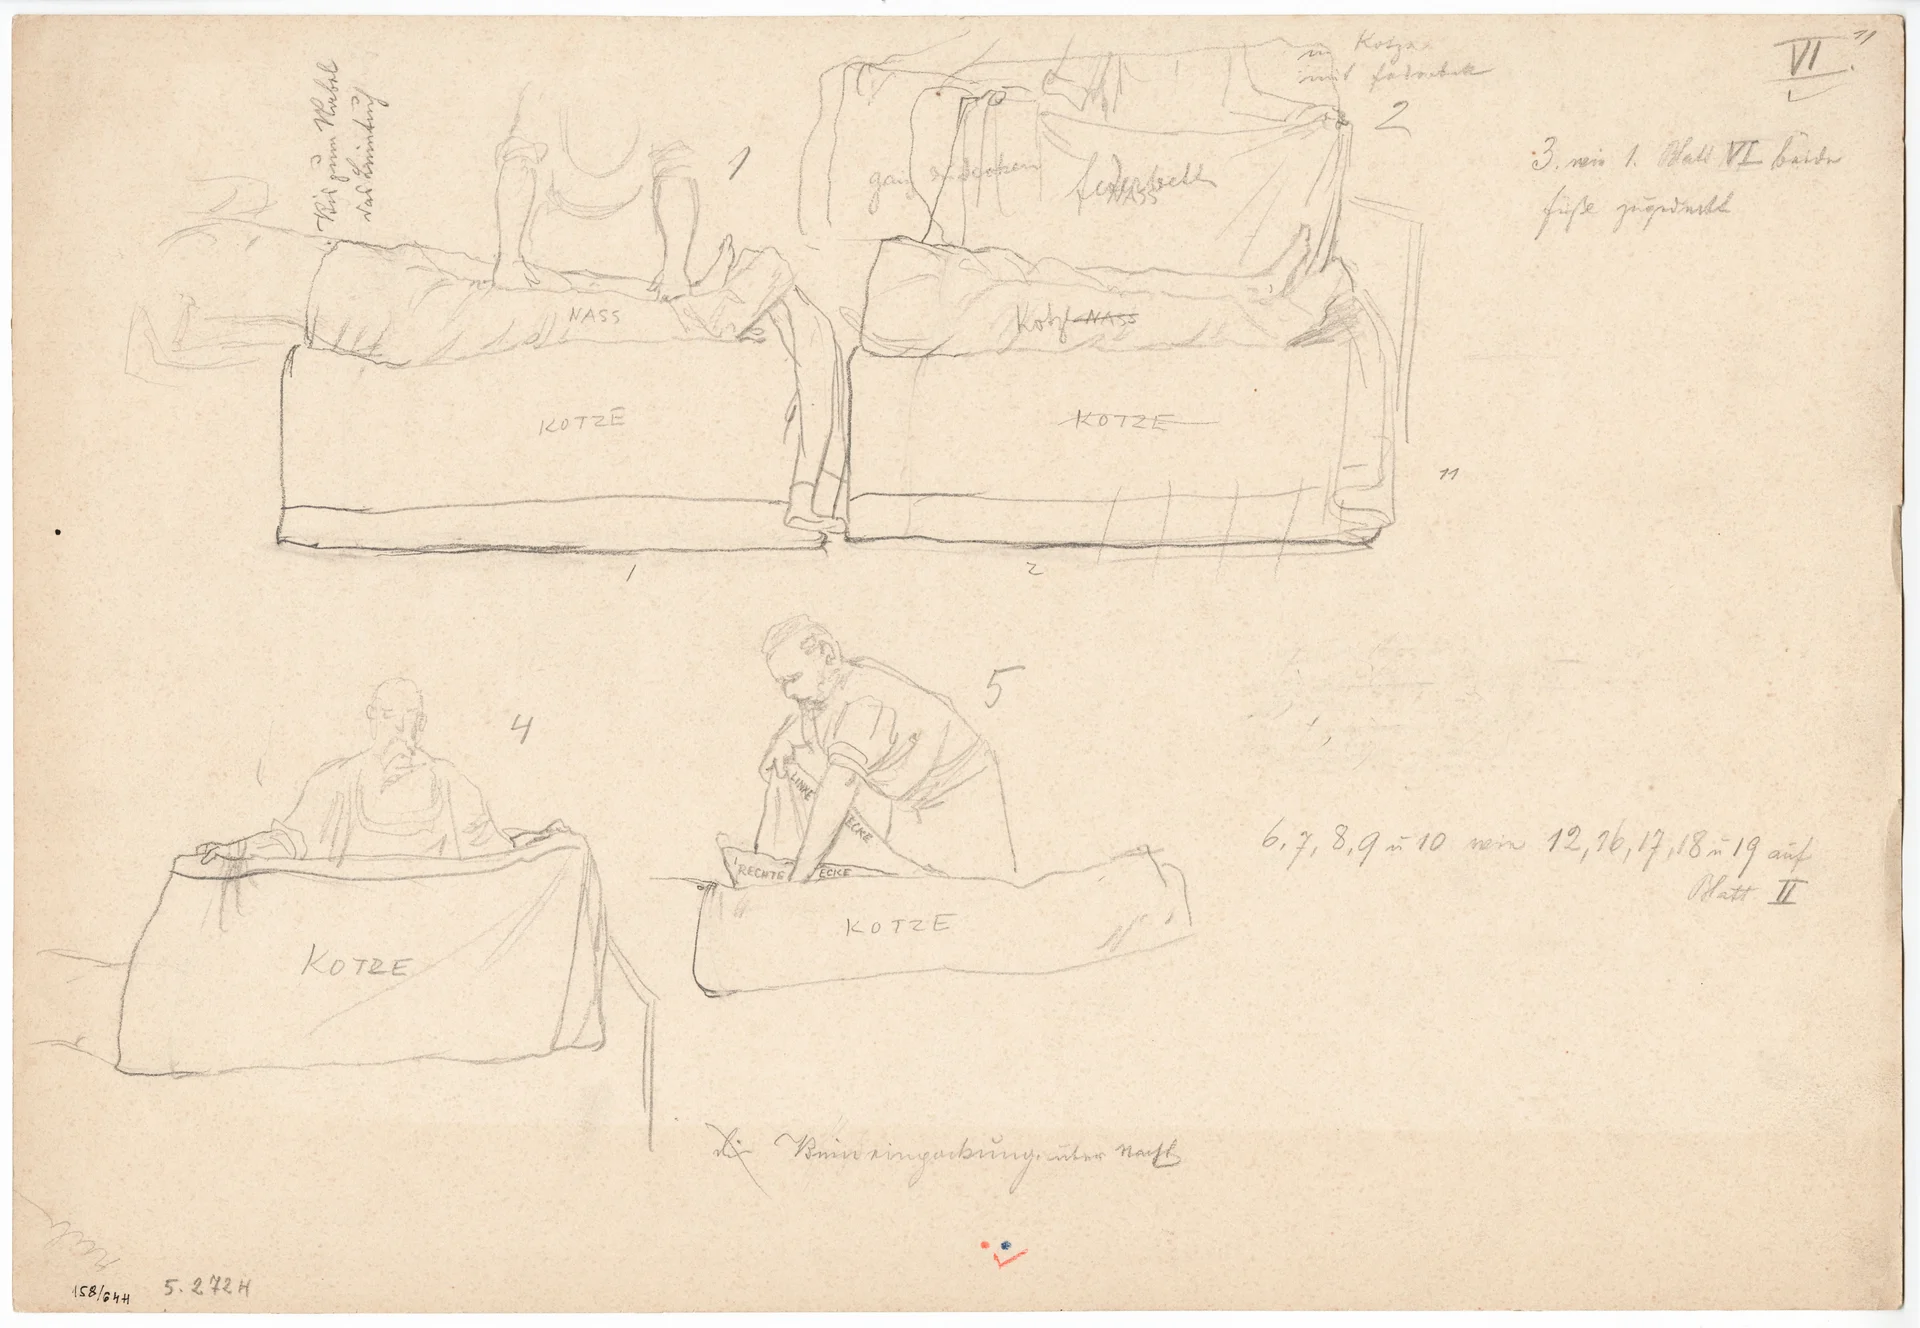 VI.
11
in Kotze
mit Federbett
2
1
Bis zum Nabel
das Leintuch
3. wie 1. Blatt VI beide
Füße zugedeckt
ganz zudecken
Federbett
NASS
NASS
Kotze NASS
KOTZE
KOTZE
11
1
2
4
5
LINKE
ECKE
RECHTE ECKE
KOTZE
KOTZE
6, 7, 8, 9 u 10 wie 12, 16, 17, 18 u 19 auf
Blatt II
Beineinpackung über Nacht
158/64H
5.272H